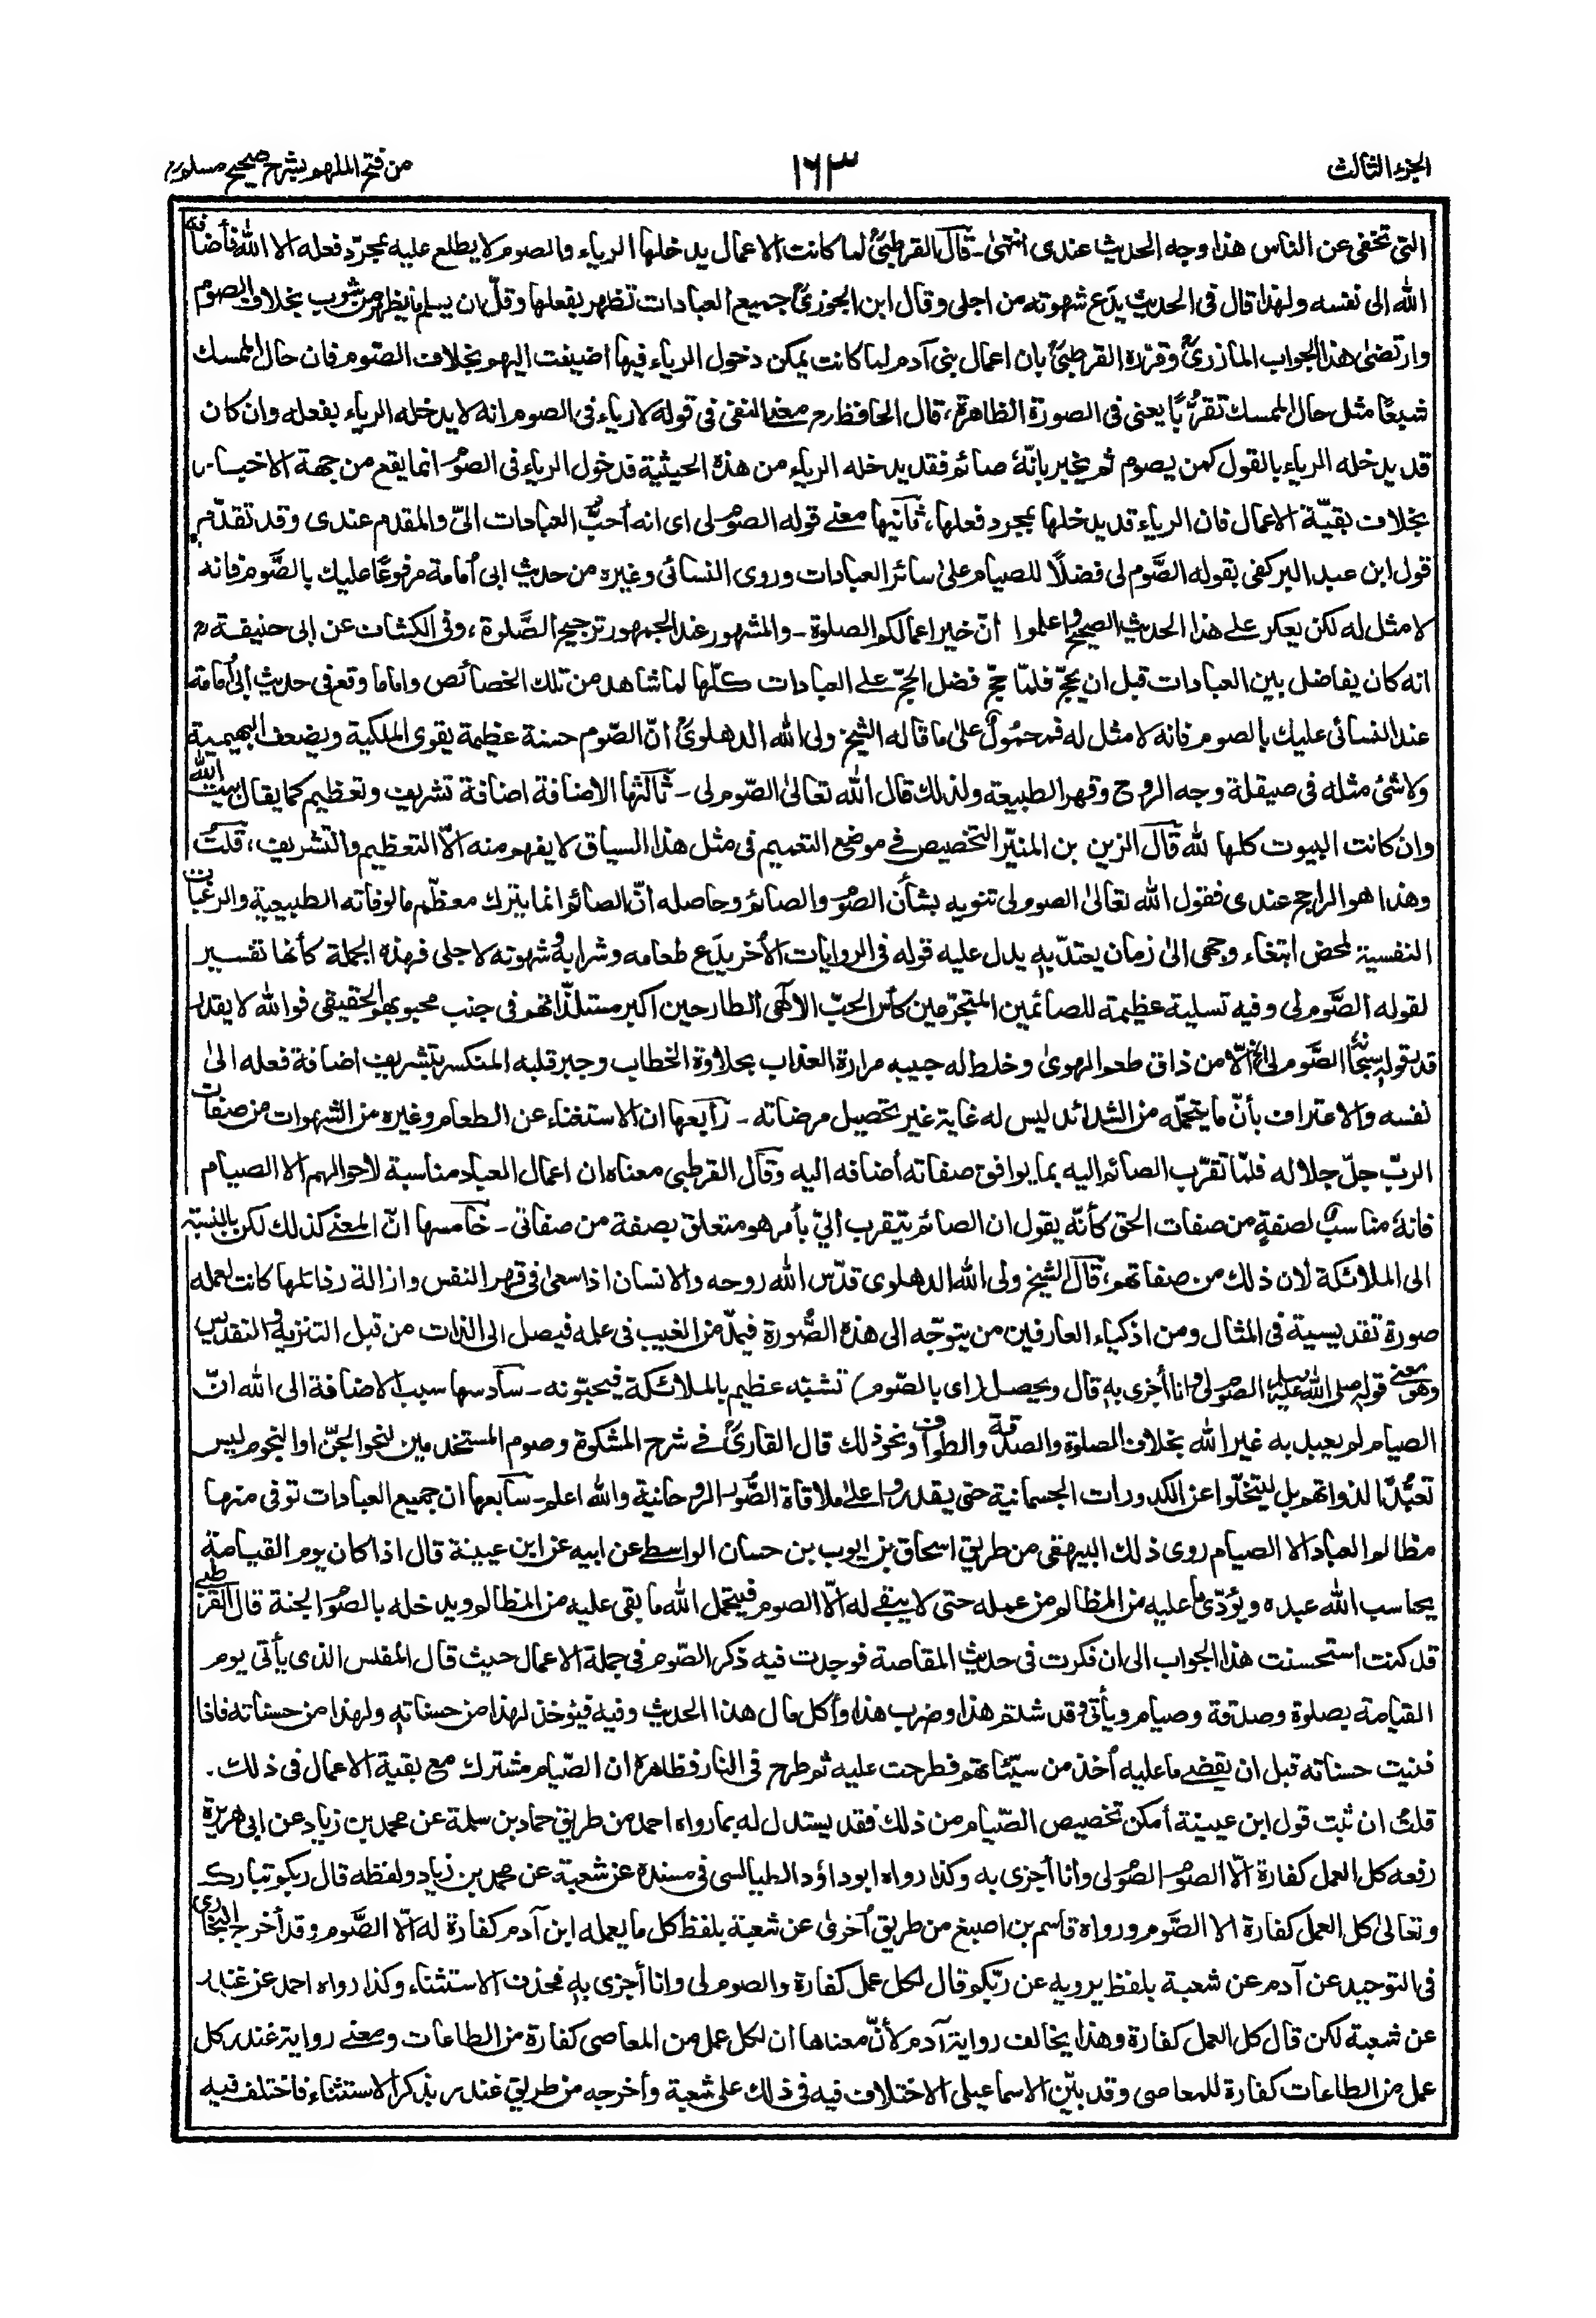 الجزء الثالث
١٦٣
من فتح الملهم بشرح صحيح مسلم
التي تخفى عن الناس هذا وجه الحديث عندى انتهىٰ ـ قال القرطبيؒ لما كانت الاعمال يدخلها الرياء والصوم لا يطلع عليه بمجرّد فعله الا الله فأضافه
الله الى نفسه ولهذا قال فى الحديث يدَع شهوته من اجلى وقال ابن الجوزىؒ جميع العبادات تظهر بفعلها وقلّ ان يسلم ما يظهر من شوب بخلاف الصوم
وارتضىٰ هذا الجواب المازرىؒ وقرّره القرطبىؒ بان اعمال بنى آدم لما كانت يمكن دخول الرياء فيها اضيفت اليهم بخلاف الصّوم فان حال الممسك
شبعًا مثل حال الممسك تقرُّبًا يعنى فى الصورة الظاهرة، قال الحافظ رم معنے النفى فى قوله لا رياء فى الصوم انه لا يدخله الرياء بفعله وان كان
قد يدخله الرياء بالقول كمن يصوم ثم يخبر بانّهٗ صائم فقد يدخله الرياء من هذه الحيثية فدخول الرياء فى الصوم انما يقع من جهة الاخبار
بخلاف بقيّة الاعمال فان الرياء قد يدخلها بمجرد فعلها، ثانيها معنے قوله الصوم لى اى انه أحبُّ العبادات الىّ والمقدم عندى وقد تقدّم
قول ابن عبد البر كفى بقوله الصَّوم لى فضلًا للصيام علىٰ سائر العبادات وروى النسائى وغيره من حديث ابى أمامة مرفوعًا عليك بالصَّوم فانه
لا مثل له لكن يعكر علے هذا الحديث الصحيح واعلموا انّ خير اعمالكم الصلوة ـ والمشهور عند الجمهور ترجيح الصَّلوة، وفى الكشاف عن ابى حنيفة رم
انه كان يفاضل بين العبادات قبل ان يحجّ فلمّا حجّ فضل الحجّ علے العبادات كلّها لما شاهد من تلك الخصائص واما ما وقع فى حديث ابى أمامة
عند النسائى عليك بالصوم فانه لا مثل له فمحمُولٌ علىٰ ما قاله الشيخ ولى الله الدهلوىؒ انّ الصّوم حسنة عظيمة يقوى الملكية ويضعف البهيمية
ولا شئ مثله فى صيقلة وجه الروح وقهر الطبيعة ولذلك قال الله تعالىٰ الصّوم لى ـ ثالثها الإضافة اضافة تشريف وتعظيم كما يقال بيت الله
وان كانت البيوت كلها لله قال الزين بن المنيّر التخصيص فے موضع التعميم فى مثل هذا السياق لا يفهم منه الّا التعظيم والتشريف، قلتُ
وهذا هو الراجح عندى فقول الله تعالىٰ الصوم لى تنويه بشأن الصوم والصائم وحاصله انّ الصائم انما يترك معظّم مالوفاته الطبيعية والرغبات
النفسية لمحض ابتغاء وجهى الىٰ زمان يعتدّ به يدل عليه قوله فى الروايات الأخر يدَع طعامه وشرابهٗ وشهوته لاجلى فهذه الجملة كأنها تفسير
لقوله الصَّوم لى وفيه تسلية عظيمة للصائمين المتجرّعين كأس الحبّ الالٰهى الطارحين اكبر مستلذّاتهم فى جنب محبوبهم الحقيقى فوالله لا يقدر
قدر قولهٖ سبحانه الصَّوم لى الّا من ذاق طعم الهوىٰ وخلط له حبيبه مرارة العذاب بحلاوة الخطاب وجبر قلبه المنكسر بتشريف اضافة فعله الىٰ
نفسه والاعتراف بأنّ ما يتحمّله من الشدائد ليس له غاية غير تحصيل مرضاته ـ رابعها ان الاستغناء عن الطعام وغيره من الشهوات من صفات
الربّ جلّ جلاله فلمّا تقرّب الصائم اليه بما يوافق صفاته أضافه اليه وقال القرطبى معناه ان اعمال العباد مناسبة لأحوالهم الا الصيام
فانهٗ مناسبٌ لصفةٍ من صفات الحق كأنّه يقول ان الصائم يتقرب الىّ بأمر هو متعلق بصفة من صفاتى ـ خامسها انّ المعنٰے كذلك لكن بالنسبة
الى الملائكة لان ذلك من صفاتهم، قال الشيخ ولى الله الدهلوى قدّس الله روحه والانسان اذا سعىٰ فى قهر النفس وازالة رذائلها كانت لعمله
صورة تقديسية فى المثال ومن اذكياء العارفين من يتوجّه الى هذه الصُّورة فيمدّ من الغيب فى علمه فيصل الى الذات من قبل التنزيه والتقديس
وهو معنے قولهٖ صلى الله عليه وسلم الصوم لى وانا أجزى بهٖ قال ويحصل (اى بالصّوم) تشبّه عظيم بالملائكة فيحبّونه ـ سادسها سبب الاضافة الى الله انّ
الصيام لم يعبد به غير الله بخلاف الصلوة والصدقة والطواف ونحو ذلك قال القارىؒ فے شرح المشكوة وصوم المستخدمين لنحو الجنّ او النجوم ليس
تعبُّدًا لذواتهم بل ليتخلّوا عن الكدورات الجسمانية حتى يقدروا علےٰ ملاقاة الصُّور الروحانية والله اعلم ـ سابعها ان جميع العبادات توفى منها
مظالم العباد الا الصيام روى ذلك البيهقى من طريق اسحاق بن ايوب بن حسان الواسطے عن ابيه عن ابن عيينة قال اذا كان يوم القيامة
يحاسب الله عبده ويؤدّى ما عليه من المظالم من عمله حتى لا يبقے له الّا الصوم فيتحمل الله ما بقى عليه من المظالم ويدخله بالصوم الجنة قال القرطبے
قد كنت استحسنت هذا الجواب الى ان فكرت فى حديث المقاصة فوجدت فيه ذكر الصّوم فى جملة الاعمال حيث قال المفلس الذى يأتى يوم
القيامة بصلوة وصدقة وصيام ويأتى وقد شتم هذا وضرب هذا وأكل مال هذا الحديث وفيه فيؤخذ لهذا من حسناتهٖ ولهذا من حسناته فاذا
فنيت حسناته قبل ان يقضے ما عليه أخذ من سيّئاتهم فطرحت عليه ثم طرح فى النار فظاهره ان الصّيام مشترك مع بقية الاعمال فى ذلك.
قلتُ ان ثبت قول ابن عيينة أمكن تخصيص الصّيام من ذلك فقد يستدل له بما رواه احمد من طريق حماد بن سلمة عن محمد بن زياد عن ابى هريرة
رفعه كل العمل كفارة الّا الصوم الصوم لى وانا أجزى به وكذا رواه ابو داؤد الطيالسى فى مسنده عن شعبة عن محمد بن زياد ولفظه قال ربكم تبارك
وتعالىٰ كل العمل كفارة الا الصَّوم ورواه قاسم بن اصبغ من طريق أخرىٰ عن شعبة بلفظ كل ما يعمله ابن آدم كفارة له الّا الصَّوم وقد أخرجه البخارى
فى التوحيد عن آدم عن شعبة بلفظ يرويه عن ربّكم قال لكل عمل كفارة والصوم لى وانا أجزى بهٖ فحذف الاستثناء وكذا رواه احمد عن غندر
عن شعبة لكن قال كل العمل كفارة وهذا يخالف رواية آدم لأنّ معناها ان لكل عمل من المعاصى كفارة من الطاعات ومعنے رواية غندر كل
عمل من الطاعات كفارة للمعاصى وقد بيّن الاسماعيلى الاختلاف فيه فى ذلك على شعبة وأخرجه من طريق غندر بذكر الاستثناء فاختلف فيه